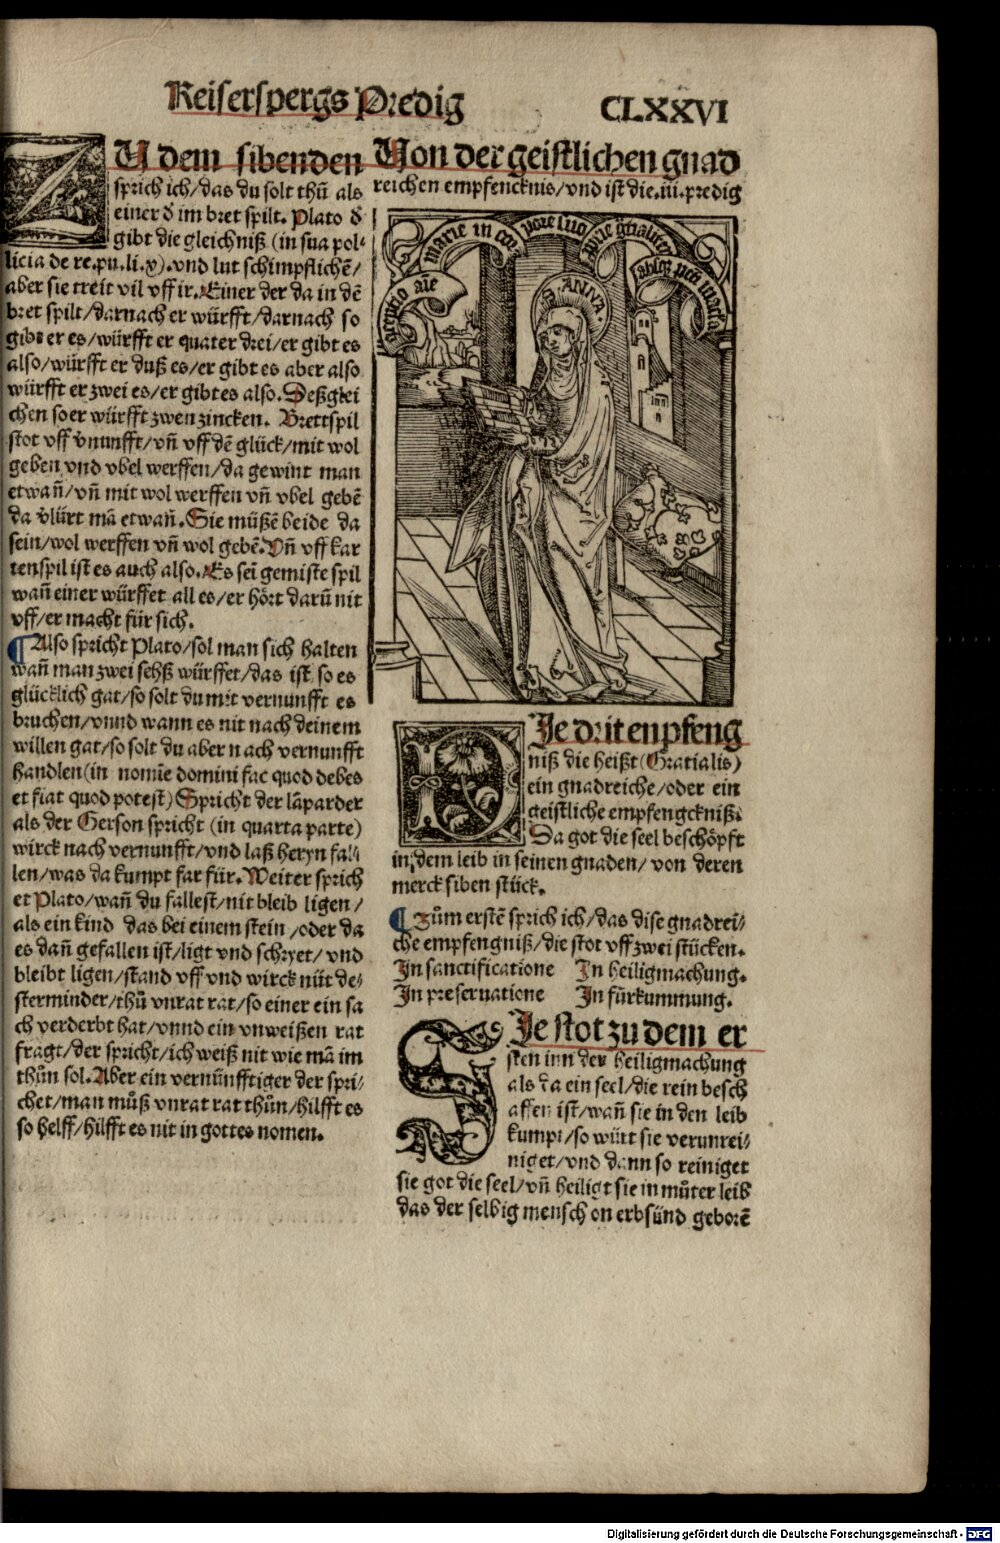 Keiserspergs Predig
CLXXVI
ZU dem sibenden
sprich ich/das du solt thũ als
einer d̄ im bret spilt. Plato d̄
gibt die gleichniß (in sua pol-
licia de re.pu.li.x).vnd lut schimpflichẽ/
aber sie treit vil vff ir. Einer der da in dẽ
bret spilt/darnach er würfft/darnach so
gibt er es/würfft er quater drei/er gibt es
also/würfft er duß es/er gibt es aber also
würfft er zwei es/er gibt es also. Deßglei
chen so er würfft zwen zincken. Brettspil
stot vff v̄nunfft/vñ vff dẽ glück/mit wol
geben vnd vbel werffen/da gewint man
etwañ/vñ mit wol werffen vñ vbel gebẽ
da v̄lürt mã etwañ. Sie müßẽ beide da
sein/wol werffen vñ wol gebẽ. Vñ vff kar
tenspil ist es auch also. Es seĩ gemiste spil
wañ einer würffet all es/er hört darũ nit
vff/er macht für sich.
¶ Also spricht Plato/sol man sich halten
wañ man zwei sehß würffet/das ist so es
glücklich gat/so solt du mit vernunfft es
bruchen/vnnd wann es nit nach deinem
willen gat/so solt du aber nach vernunfft
handlen (in nomĩe domini fac quod debes
et fiat quod potest) Spricht der lãparder
als der Gerson spricht (in quarta parte)
wirck nach vernunfft/vnd laß heryn fal-
len/was da kumpt far für. Weiter sprich
et Plato/wañ du fallest/nit bleib ligen/
als ein kind das bei einem stein/oder da
es dañ gefallen ist/ligt vnd schryet/vnd
bleibt ligen/stand vff vnd wirck nüt de-
sterminder/thũ vnrat rat/so einer ein sa
ch verderbt hat/vnnd ein vnweißen rat
fragt/der spricht/ich weiß nit wie mã im
thũn sol. Aber ein vernünfftiger der spri-
chet/man můß vnrat rat thũn/hilfft es
so helff/hilfft es nit in gottes nomen.
Von der geistlichen gnad
reichen empfencknis/vnd ist die.iii.predig
marie in cor
pore suo
S. ANNA.
DJe drit enpfeng
niß die heißt (Gratialis)
ein gnadreiche/oder ein
geistliche empfengckniß.
Da got die seel beschöpft
in dem leib in seinen gnaden/von deren
merck siben stück.
¶ Zům erstẽ sprich ich/das dise gnadrei-
che empfengniß/die stot vff zwei stücken.
In sanctificatione In heiligmachung.
In preseruatione In fürkummung.
SJe stot zu dem er
sten inn der heiligmachung
als da ein seel/die rein besch
affen ist/wañ sie in den leib
kumpt/so würt sie verunrei-
niget/vnd dann so reiniget
sie got die seel/vñ heiligt sie in můter leib
das der selbig mensch on erbsünd geborẽ
Digitalisierung gefördert durch die Deutsche Forschungsgemeinschaft - DFG